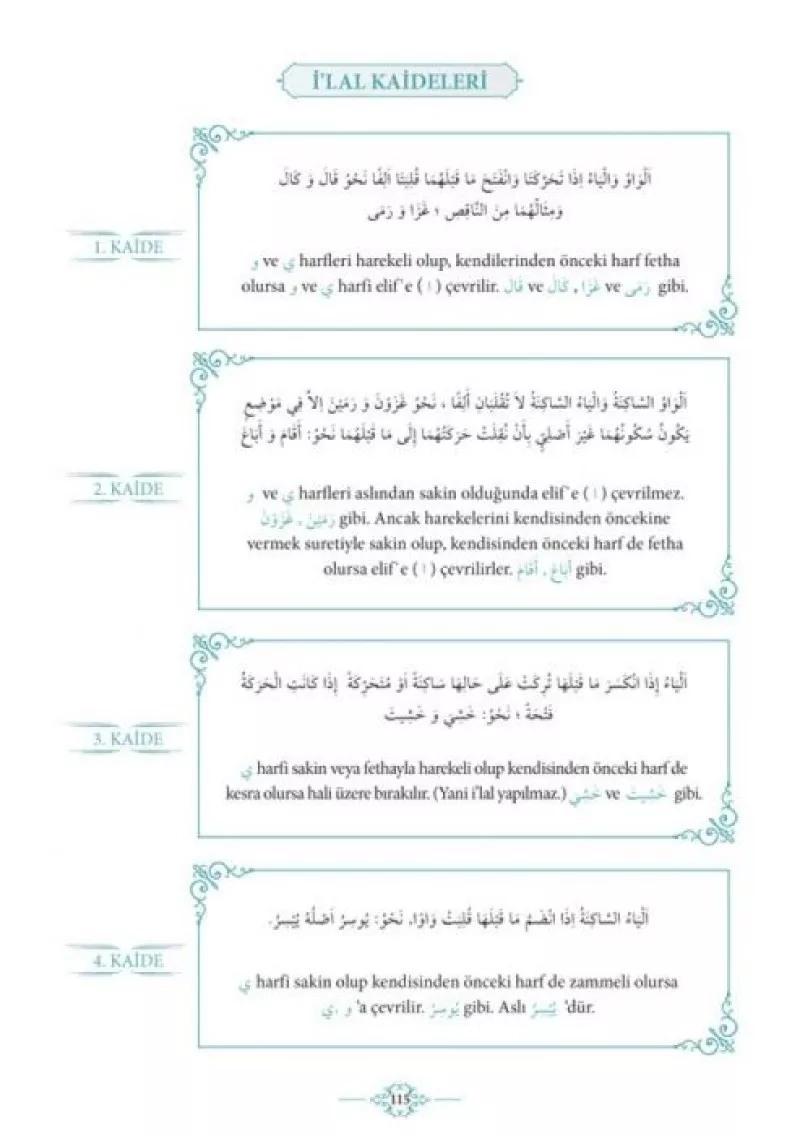 İ'LAL KAİDELERİ
1. KAİDE
اَلْوَاوُ وَالْيَاءُ إِذَا تَحَرَّكَتَا وَانْفَتَحَ مَا قَبْلَهُمَا قُلِبَتَا اَلِفًا نَحْوُ قَالَ وَ كَالَ
وَمِثَالُهُمَا مِنَ النَّاقِصِ ؛ غَزَا وَ رَمَى
و ve ي harfleri harekeli olup, kendilerinden önceki harf fetha
olursa و ve ي harfi elif'e ( ا ) çevrilir. قَالَ ve كَالَ , غَزَا ve رَمَى gibi.
2. KAİDE
اَلْوَاوُ السَّاكِنَةُ وَالْيَاءُ السَّاكِنَةُ لاَ تُقْلَبَانِ أَلِفًا ، نَحْوُ غَزَوْنَ وَ رَمَيْنَ اِلاَّ فِي مَوْضِعٍ
يَكُونُ سُكُونُهُمَا غَيْرَ أَصْلِيٍّ بِأَنْ نُقِلَتْ حَرَكَتُهُمَا إِلَى مَا قَبْلَهُمَا نَحْوُ: أَقَامَ وَ أَبَاعَ
و ve ي harfleri aslından sakin olduğunda elif'e ( ا ) çevrilmez.
رَمَيْنَ , غَزَوْنَ gibi. Ancak harekelerini kendisinden öncekine
vermek suretiyle sakin olup, kendisinden önceki harf de fetha
olursa elif'e ( ا ) çevrilirler. أَبَاعَ , أَقَامَ gibi.
3. KAİDE
اَلْيَاءُ إِذَا انْكَسَرَ مَا قَبْلَهَا تُرِكَتْ عَلَى حَالِهَا سَاكِنَةً اَوْ مُتَحَرِّكَةً إِذَا كَانَتِ الْحَرَكَةُ
فَتْحَةً ؛ نَحْوُ: خَشِيَ وَ خَشِيتَ
ي harfi sakin veya fethayla harekeli olup kendisinden önceki harf de
kesra olursa hali üzere bırakılır. (Yani i'lal yapılmaz.) خَشِيَ ve خَشِيتَ gibi.
4. KAİDE
اَلْيَاءُ السَّاكِنَةُ إِذَا انْضَمَّ مَا قَبْلَهَا قُلِبَتْ وَاوًا، نَحْوُ: يُوسِرُ اَصْلُهُ يُيْسِرُ.
ي harfi sakin olup kendisinden önceki harf de zammeli olursa
ي, و 'a çevrilir. يُوسِرُ gibi. Aslı يُيْسِرُ 'dür.
115